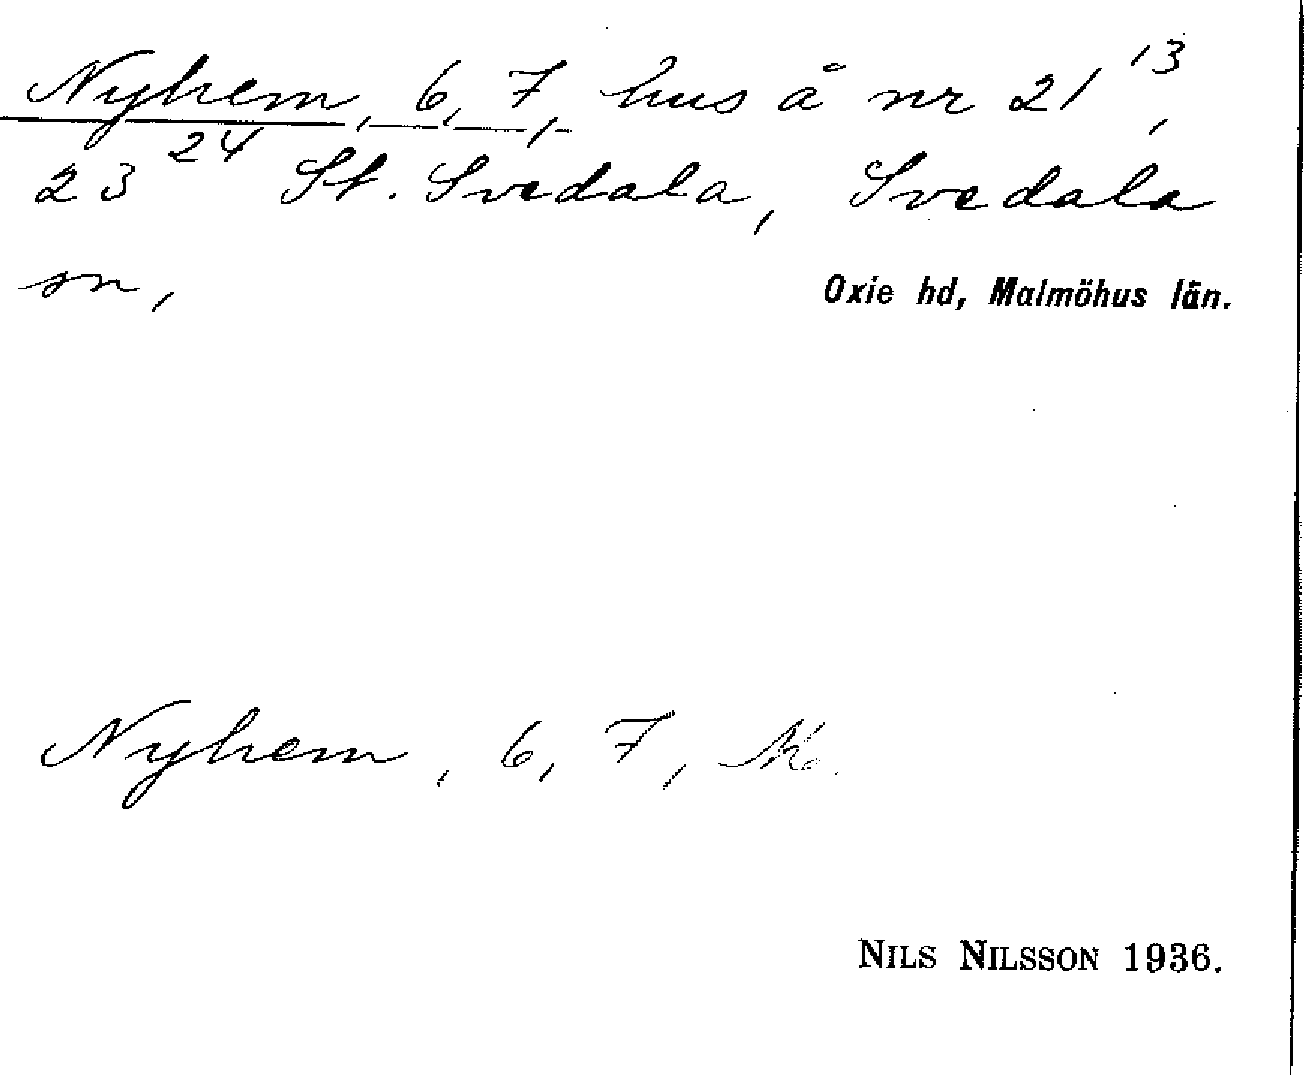 Nyhem, 6, 7, hus å nr 21¹³,
23²⁴ St. Svedala, Svedala
sn,
Oxie hd, Malmöhus län.
Nyhem, 6, 7,
NILS NILSSON 1936.